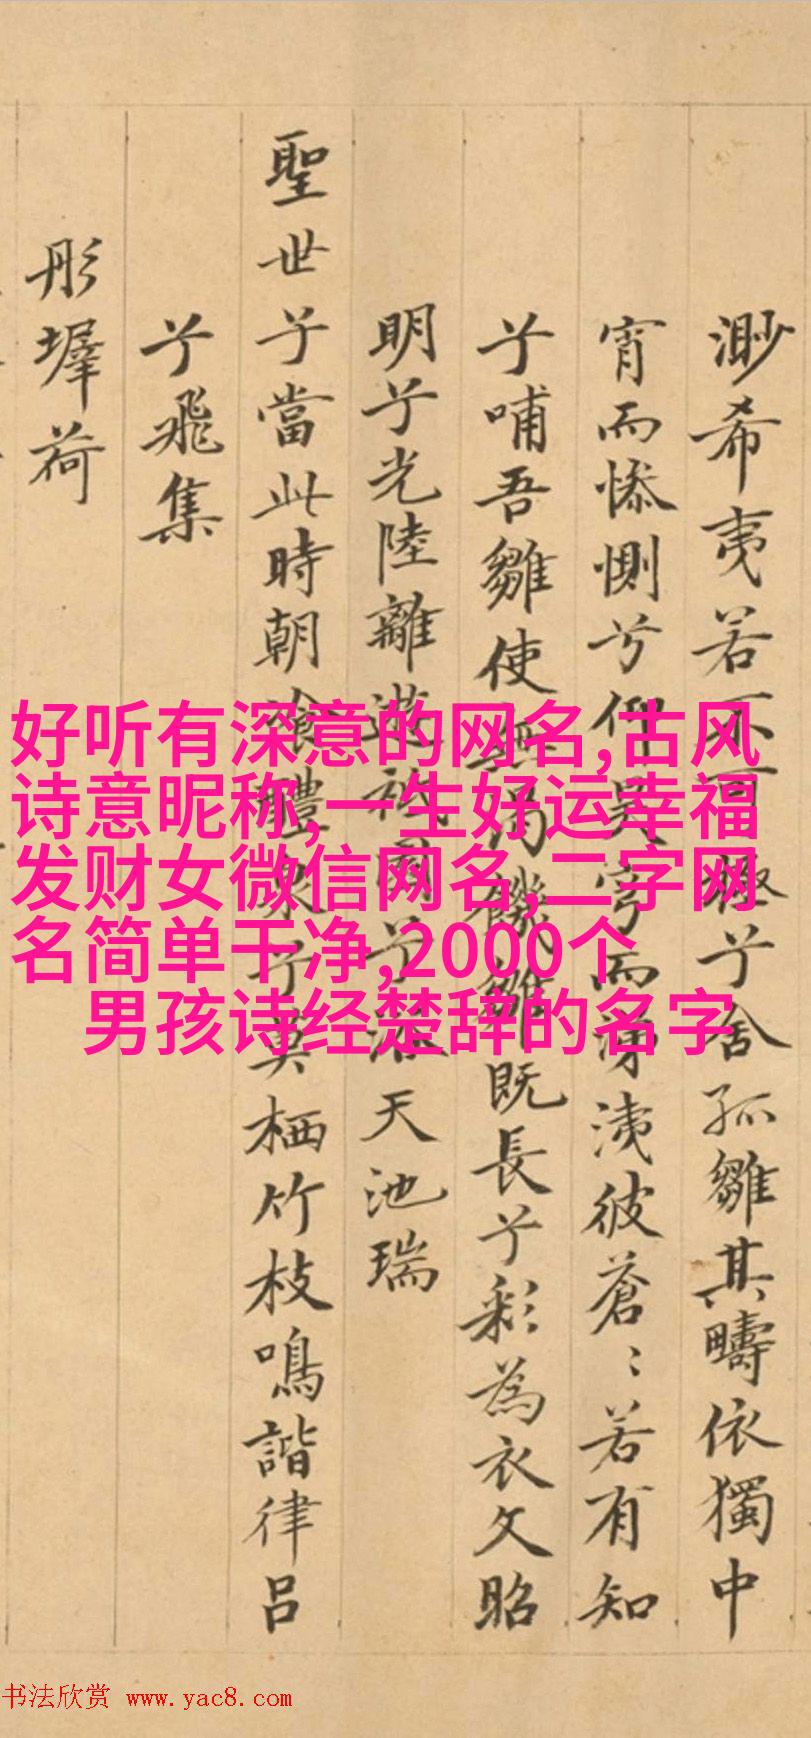 渺希夷若不可極兮舍孤雛其疇依獨中
宵而慘惻兮仰昊穹而涕洟彼蒼〻若有知
兮哺吾雛使無饑雛既長兮彩為衣文昭
明兮光陸離兮天池瑞
聖世兮當此時朝飧醴泉兮莫栖竹枝鳴諧律呂
兮飛集
彤墀荷
好听有深意的网名,古风
诗意昵称,一生好运幸福
发财女微信网名,二字网
名简单干净,2000个
男孩诗经楚辞的名字
书法欣赏 www.yac8.com